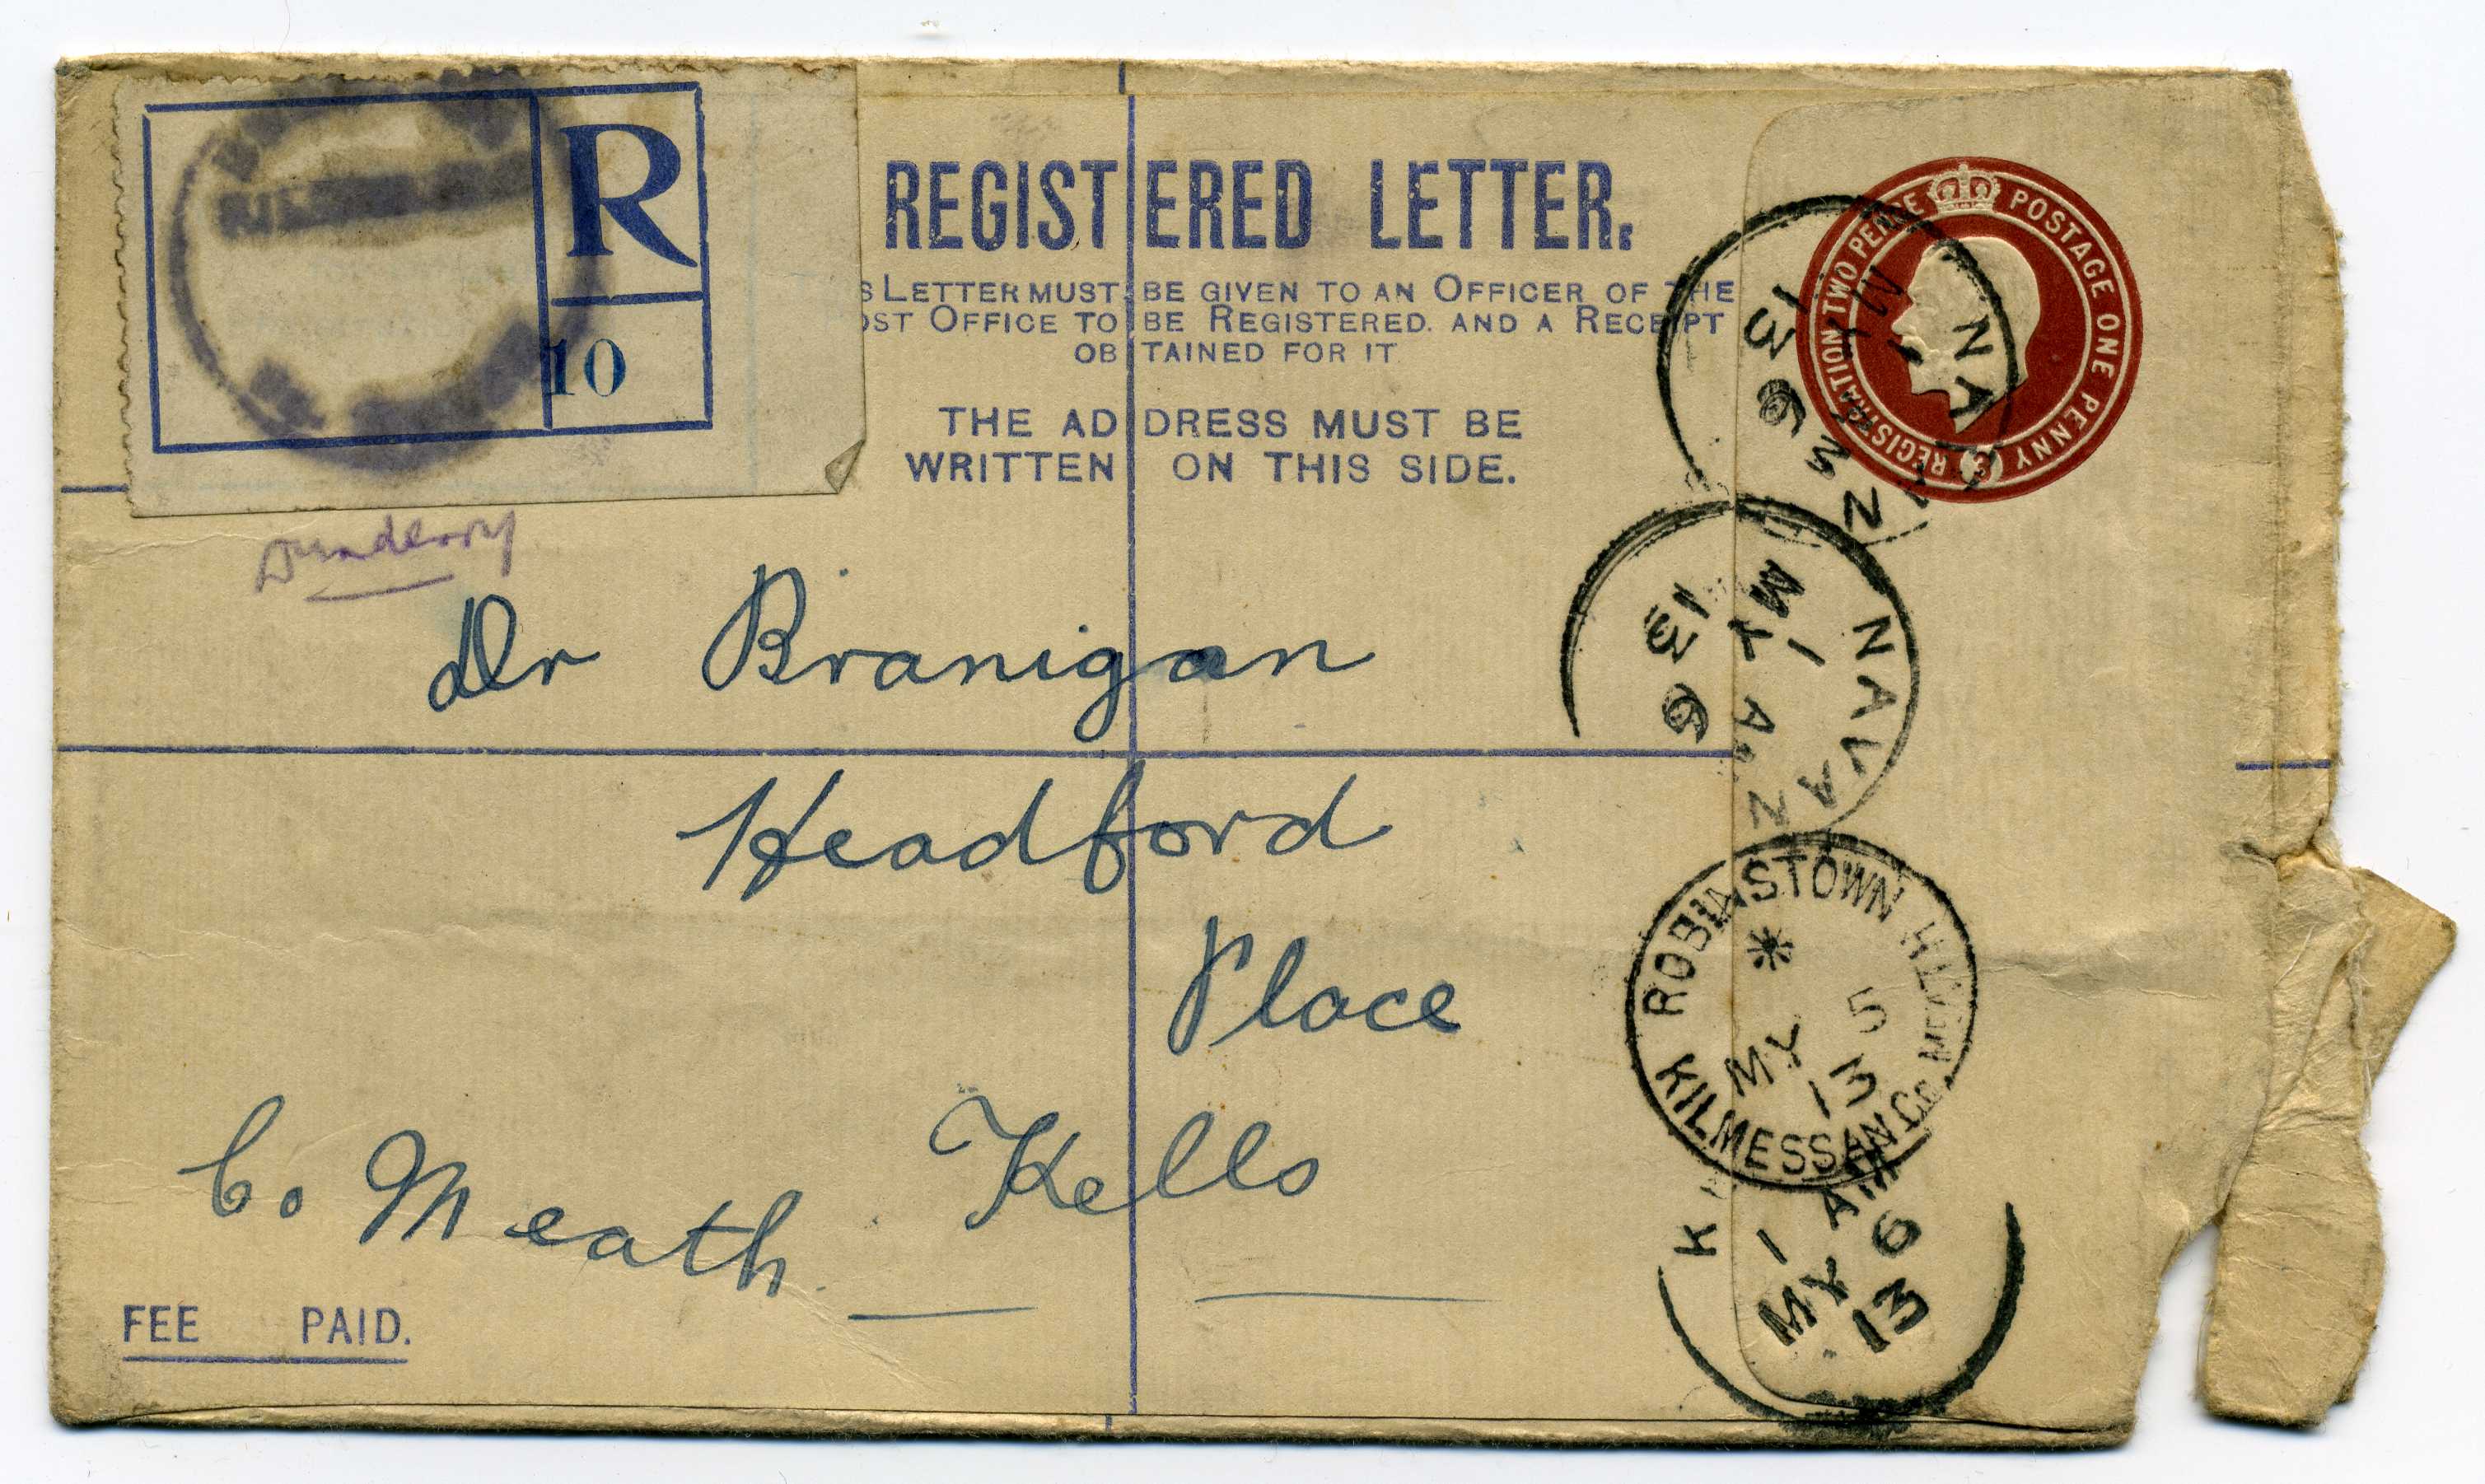 R
10
REGISTERED LETTER.
S LETTER MUST BE GIVEN TO AN OFFICER OF THE
OST OFFICE TO BE REGISTERED. AND A RECEIPT
OBTAINED FOR IT
THE ADDRESS MUST BE
WRITTEN ON THIS SIDE.
REGISTRATION TWO PENCE POSTAGE ONE PENNY (3)
Dunderry
Dr Branigan
Headford
Place
Kells
Co Meath.
FEE PAID.
NAVAN
MY
13
NAVAN
1
MY
13
ROBINSTOWN
KILMESSAN Co. MEATH
MY 5
13
K
1 AM
MY 6
13